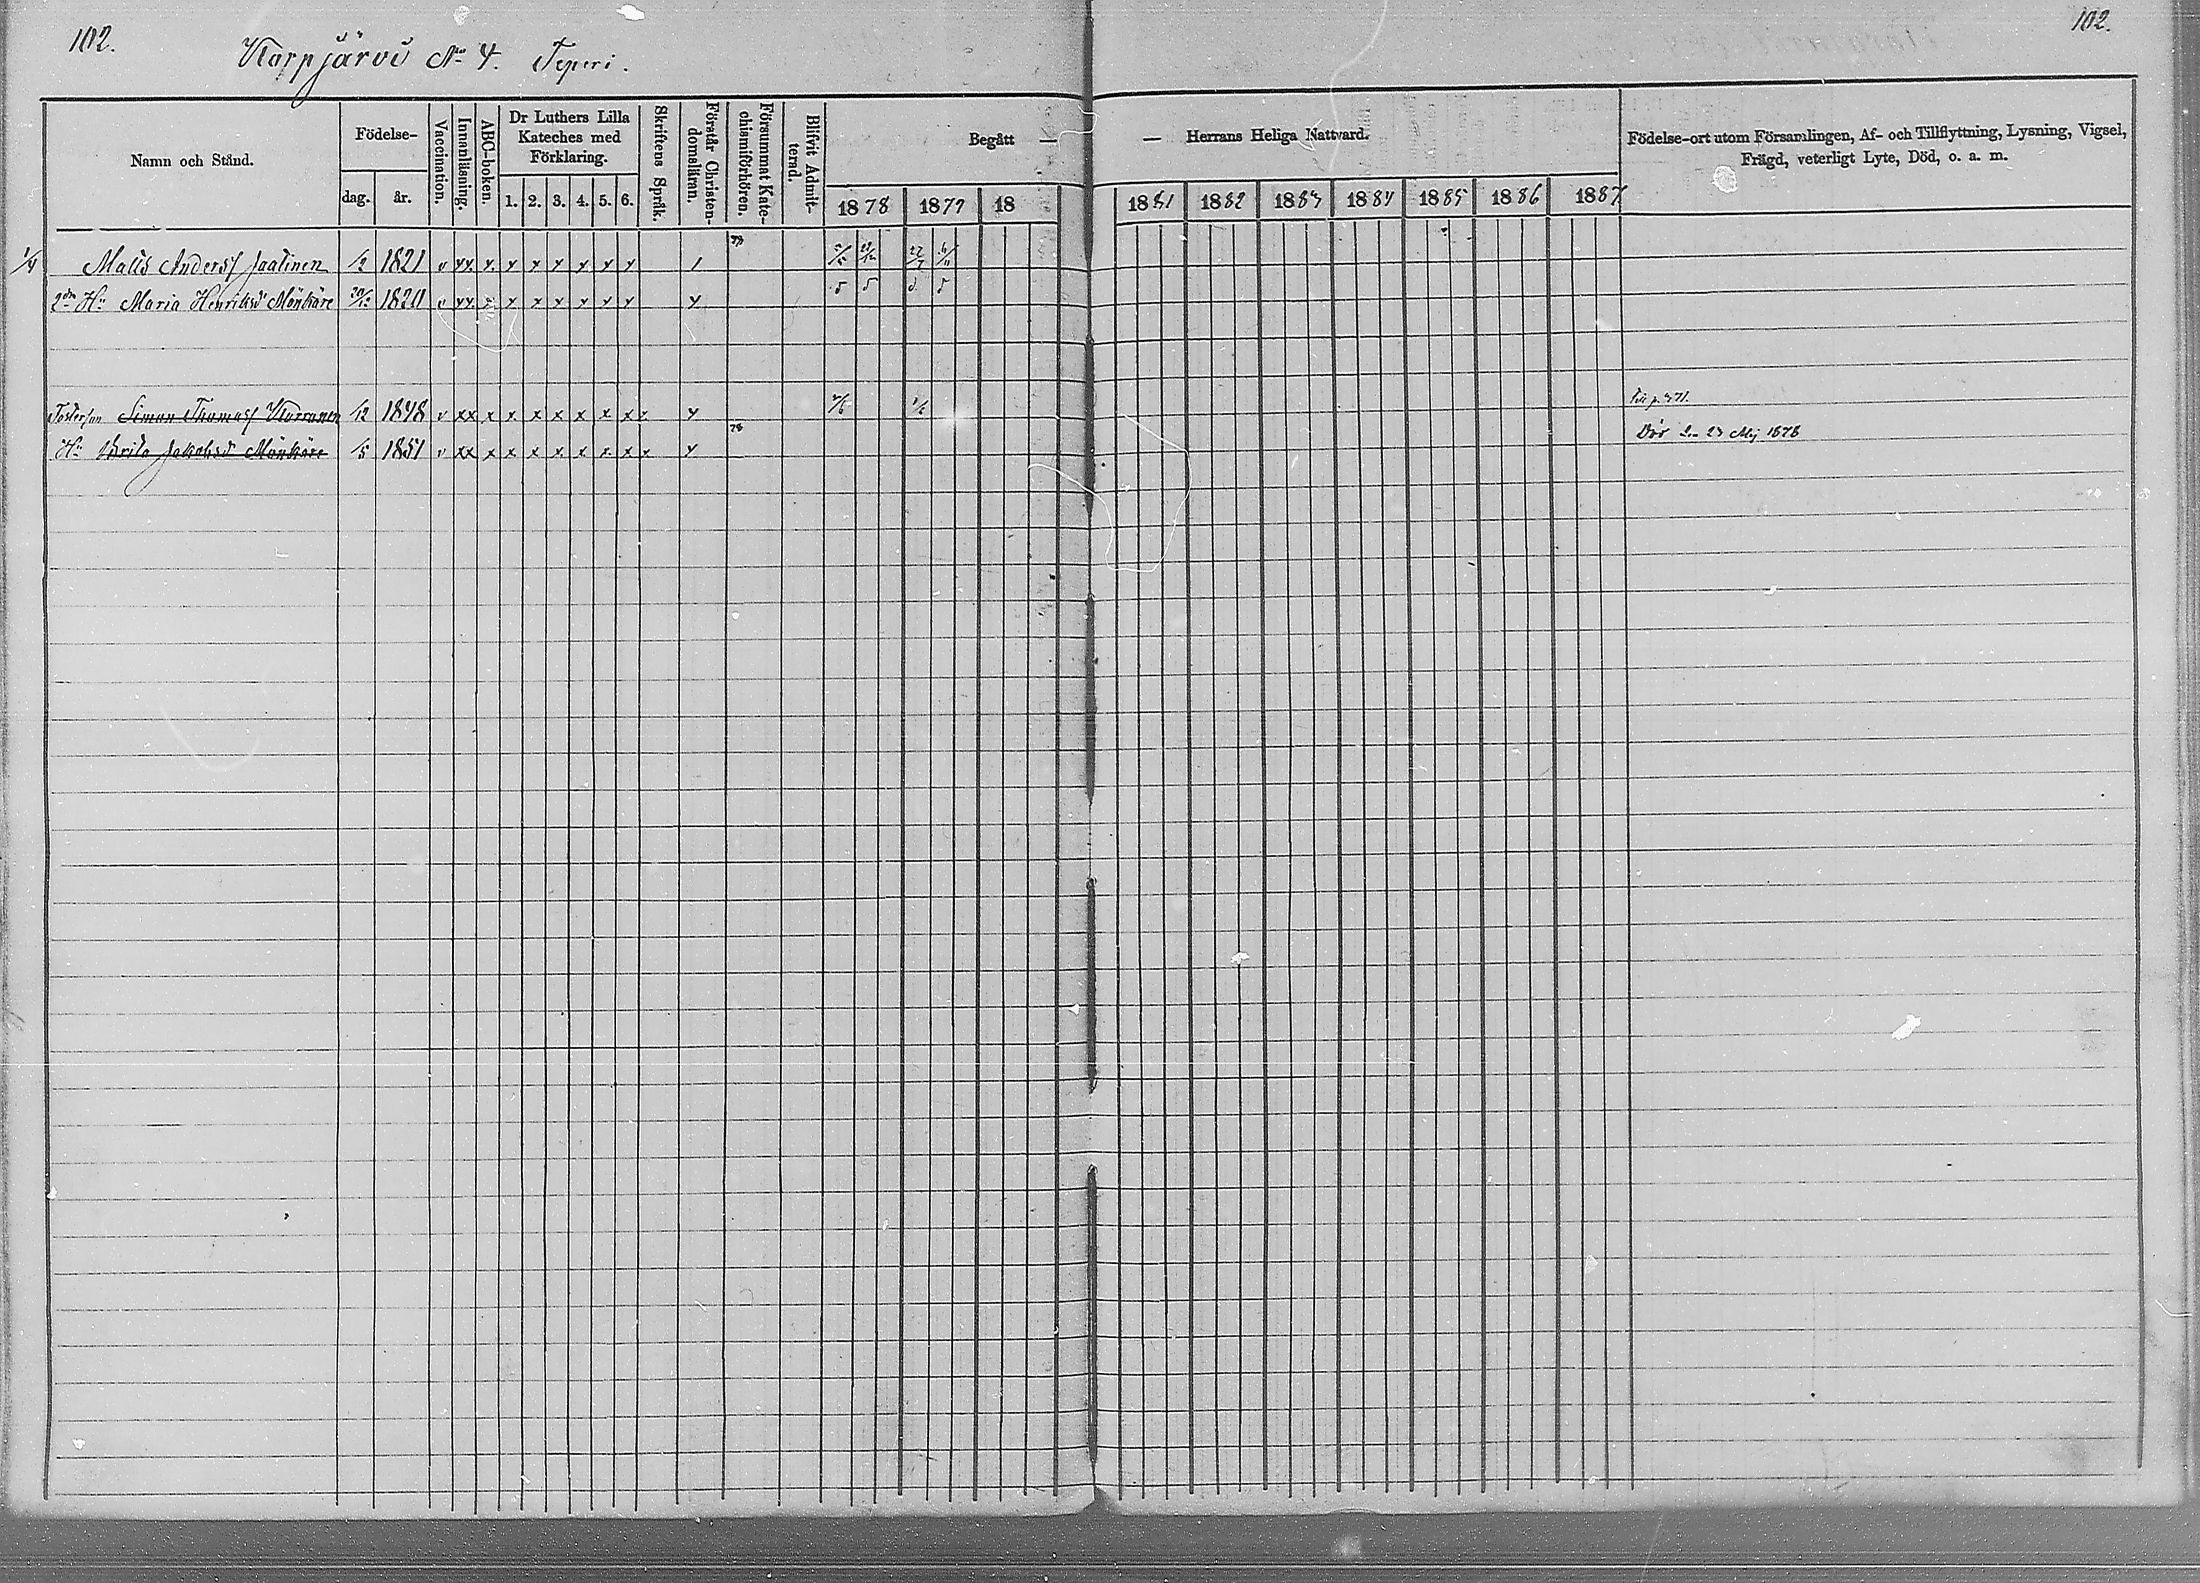 102. 102.
Karpjärvi No 4. Teperi.
Namn och Stånd.
Födelse-
dag. år.
Vaccination.
Innanläsning.
ABC-boken.
Dr Luthers Lilla
Kateches med
Förklaring.
1. 2. 3. 4. 5. 6.
Skriftens Språk.
Förstår Christen-
domsläran.
Försummat Kate-
chismiförhören.
Blifvit Admit-
terad.
Begått — — Herrans Heliga Nattvard.
1878 1879 18 1881 1882 1883 1884 1885 1886 1887
Födelse-ort utom Församlingen, Af- och Tillflyttning, Lysning, Vigsel,
Frägd, veterligt Lyte, Död, o. a. m.
1/4 Matts Anderss Jaatinen 1/2 1821 v xx x x x x x x x
2dra Hu Maria Henriksd Mönkäre 20/12 1820 v xx x x x x x x x
Fosterson Simon Thomass 1/12 1848 v xx x x x x x x x x
Hu Brita Jakobsd Mönkäre 1/5 1851 v xx x x x x x x x x
Död den 23 Maj 1878